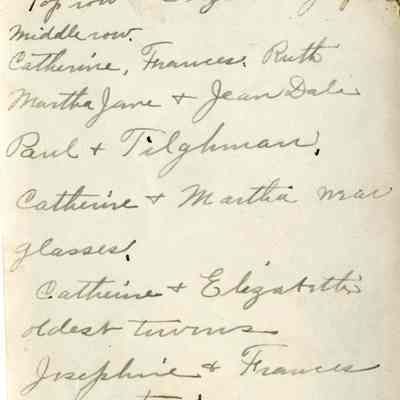 Top row
Middle row.
Catherine, Frances, Ruth
Martha Jane + Jean Dale
Paul + Tilghman.
Catherine + Martha wear
glasses.
Catherine + Elizabeth
oldest twins
Josephine + Frances